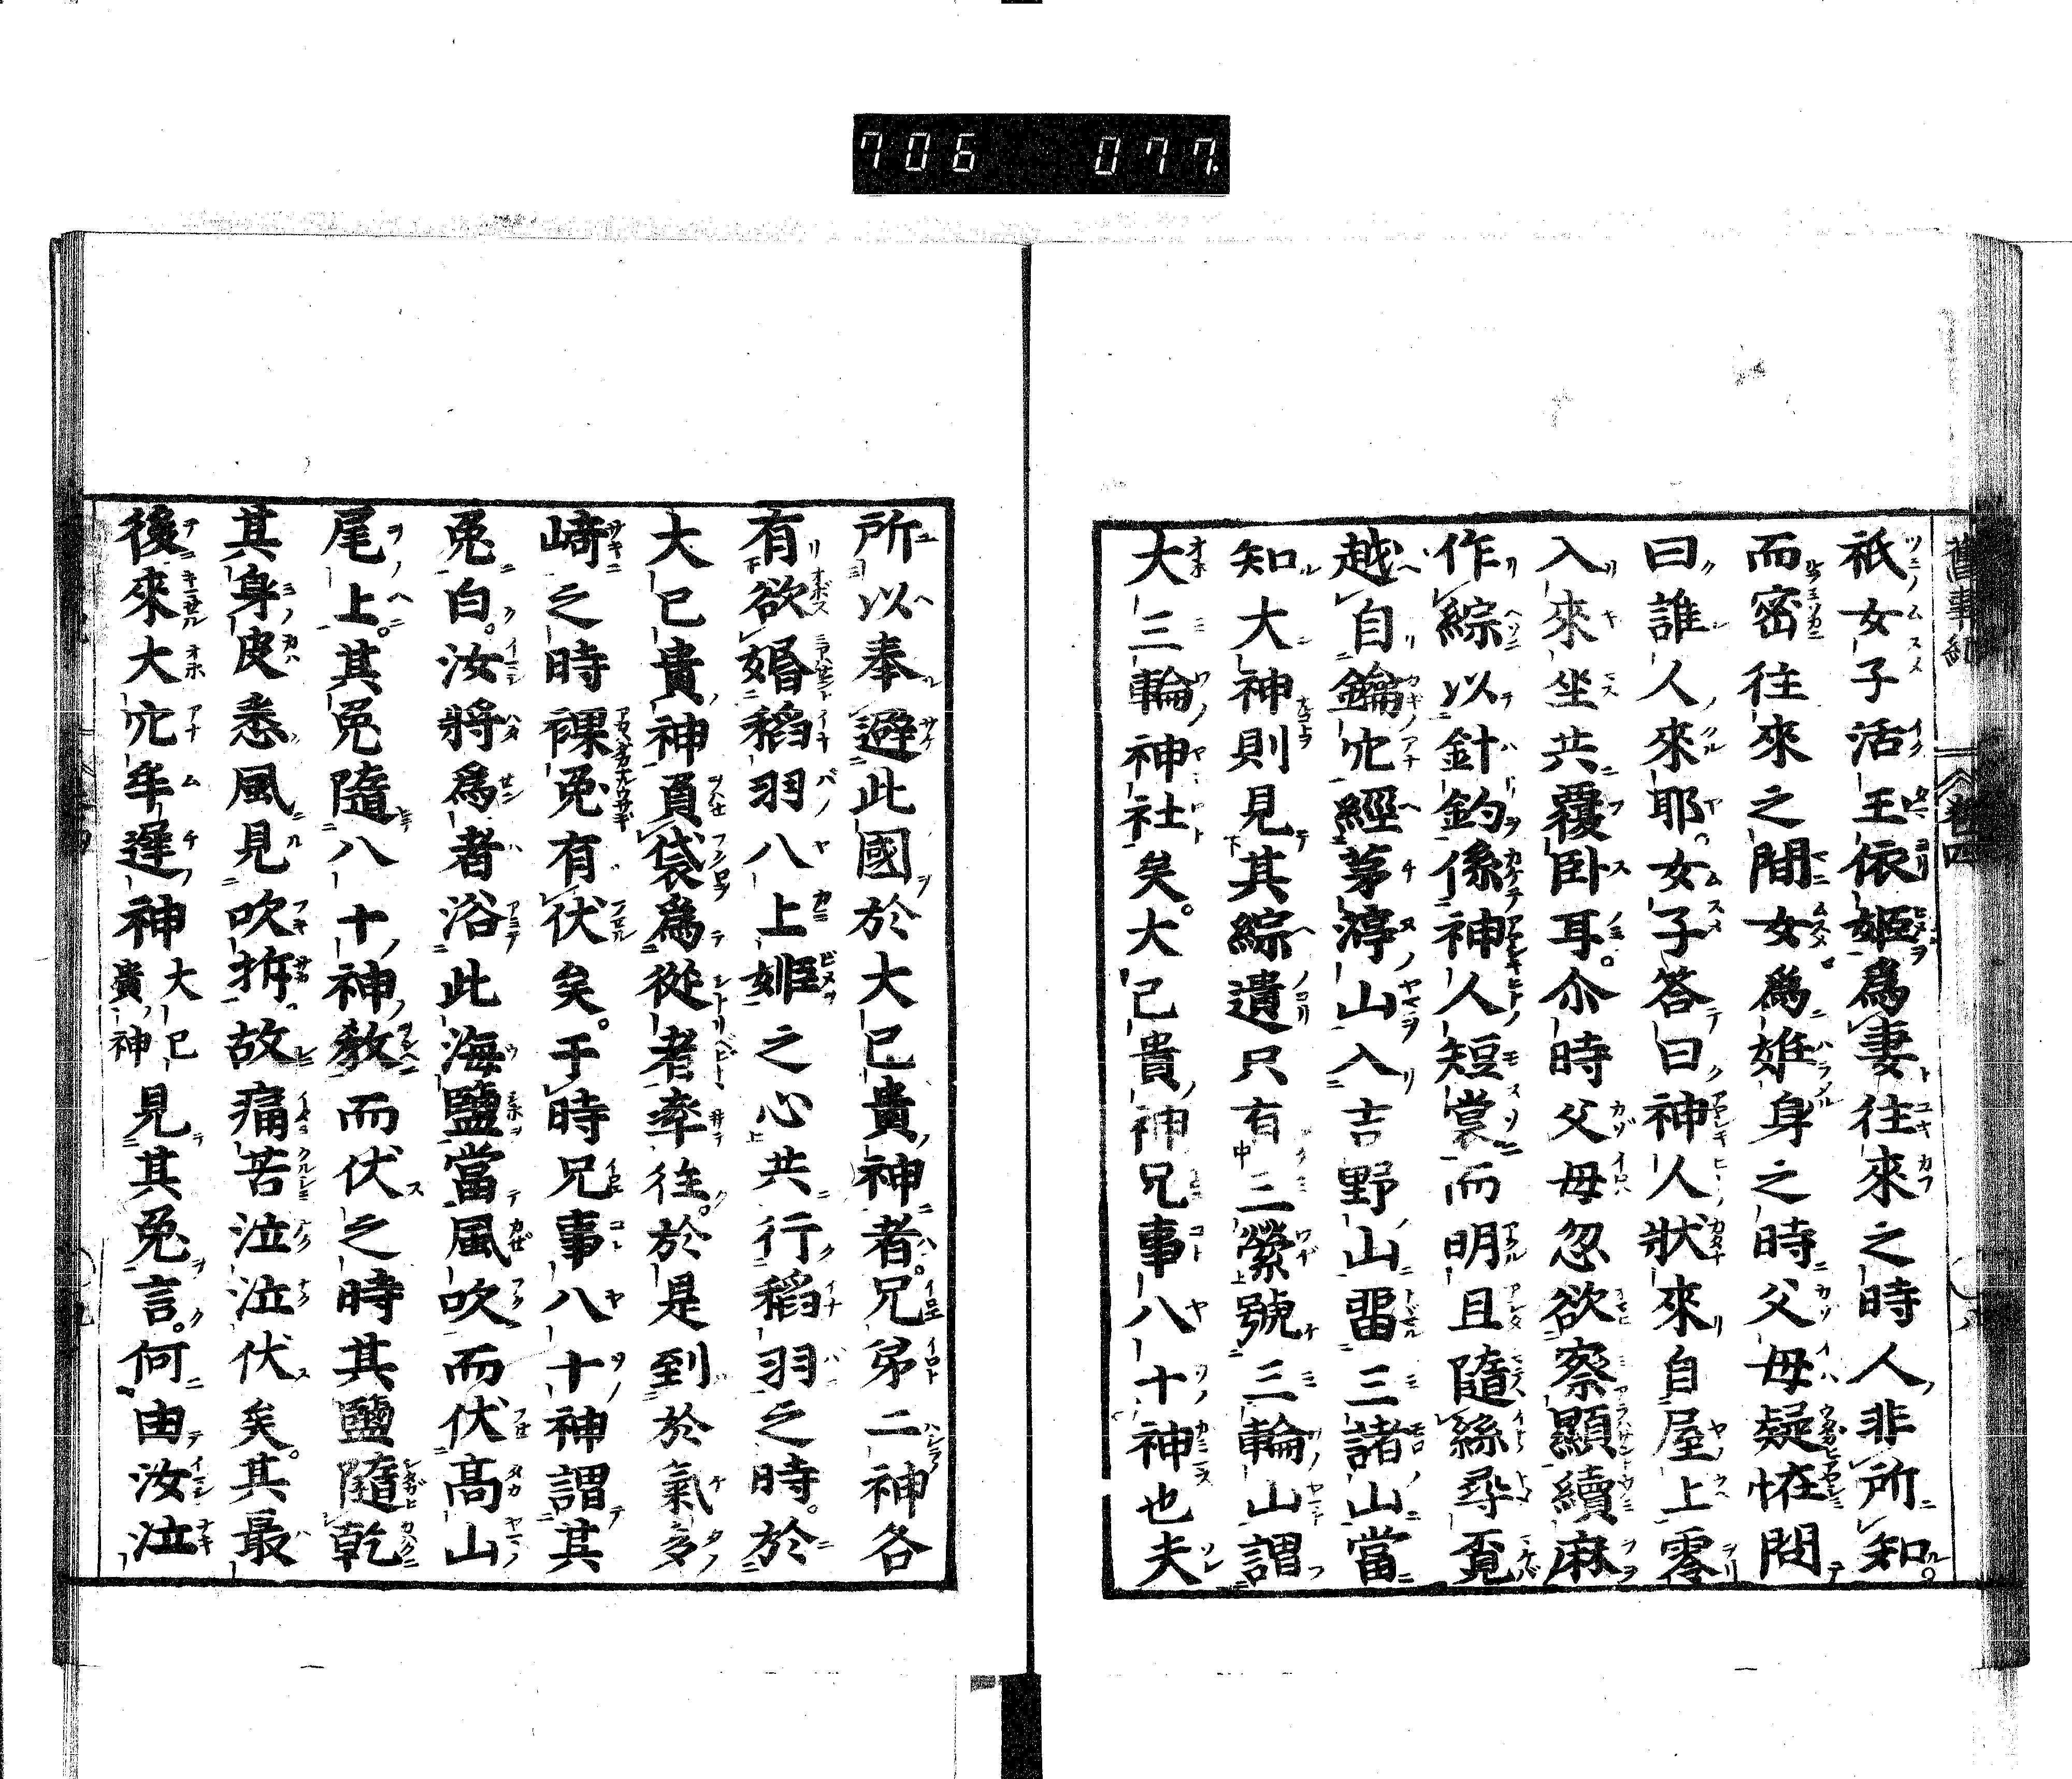 706 077.
舊事紀 卷四
祇女子活玉依姬爲妻往來之時人非所知
而密往來之間女爲姙身之時父母疑恠問
曰誰人來耶女子答曰神人狀來自屋上零
入來坐共覆卧耳尒時父母忽欲察顯續麻
作綜以針釣係神人短裳而明旦隨絲尋覔
越自鑰穴經茅渟山入吉野山畱三諸山當
知大神則見其綜遺只有三縈號三輪山謂
大三輪神社矣。大己貴神兄事八十神也夫
所以奉避此國於大己貴神者。兄弟二神各
有欲婚稻羽八上姬之心共行稻羽之時。於
大己貴神負袋爲從者率往。於是到於氣多
﨑之時裸兎有伏矣。于時兄事八十神謂其
兎白。汝將爲者浴此海鹽當風吹而伏高山
尾上。其兎隨八十神教而伏之時其鹽隨乾
其身皮悉風見吹拆。故痛苦泣泣伏矣。其最
後來大穴牟遲神大己貴神見其兎言。何由汝泣